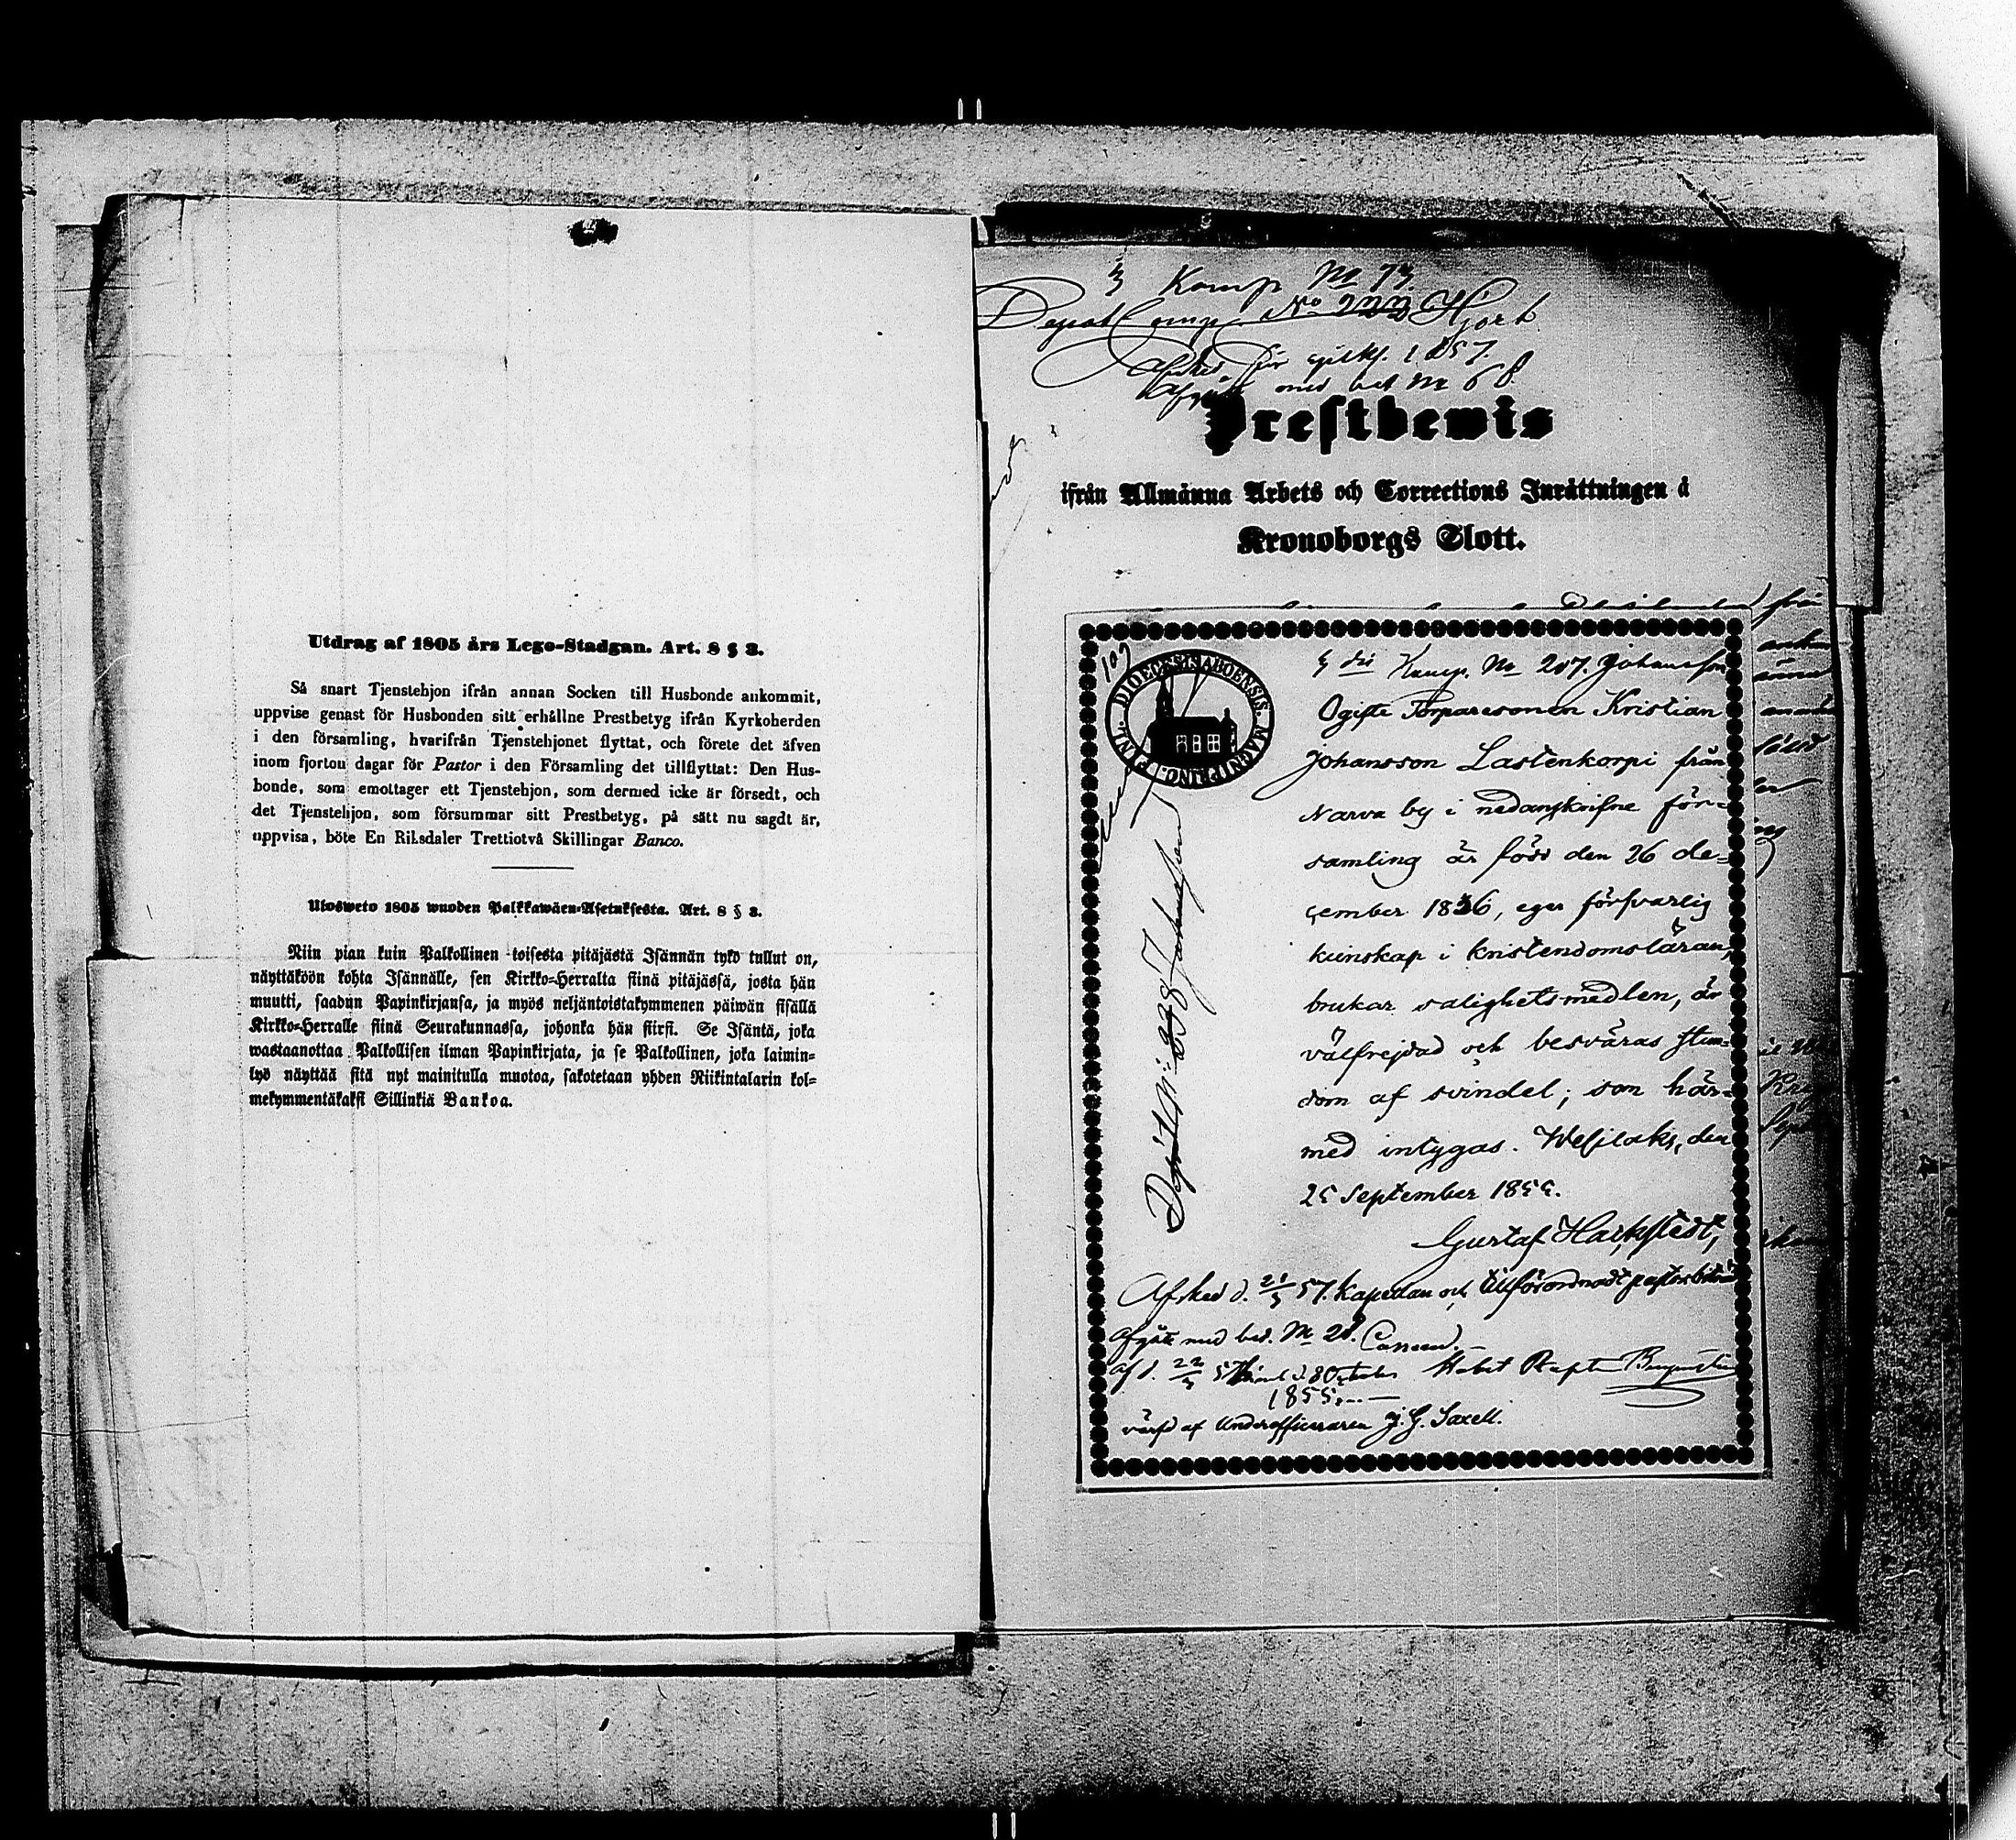 Utdrag af 1805 års Lego-Stadgan. Art. 8 § 3.
Så snart Tjenstehjon ifrån annan Socken till Husbonde ankommit,
uppvise genast för Husbonden sitt erhållne Prestbetyg ifrån Kyrkoherden
i den församling, hvarifrån Tjenstehjonet flyttat, och förete det äfven
inom fjorton dagar för Pastor i den Församling det tillflyttat: Den Hus-
bonde, som emottager ett Tjenstehjon, som dermed icke är försedt, och
det Tjenstehjon, som försummar sitt Prestbetyg, på sätt nu sagdt är,
uppvisa, böte En Riksdaler Trettiotvå Skillingar Banco.
Ulosweto 1805 wuoden Palkkawäen-Asetuksesta. Art. 8 § 3.
Niin pian kuin Palkollinen toisesta pitäjästä Isännän tykö tullut on,
näyttäköön kohta Isännälle, sen Kirkko-Herralta siinä pitäjässä, josta hän
muutti, saadun Papinkirjansa, ja myös neljäntoistakymmenen päiwän sisällä
Kirkko-Herralle siinä Seurakunnassa, johonka hän siirsi. Se Isäntä, joka
wastaanottaa Palkollisen ilman Papinkirjata, ja se Palkollinen, joka laimin-
lyö näyttää sitä nyt mainitulla muotoa, sakotetaan yhden Riikintalarin kol-
mekymmentäkaksi Sillinkiä Bankoa.
3 Komp No 73
Comp No 222 Hjort
1857.
med bet No 68
Prestbewis
ifrån Allmänna Arbets och Corrections Inrättningen å
Kronoborgs Slott.
107
DIOECESIS ABOENSIS. MAGNI PRINC. FINL.
Komp. No 207. Johansson
Ogifte Torparesonen Kristian
Johansson Lastenkorpi från
Narva by i nedanskrifne för-
samling är född den 26 de-
cember 1836, eger försvarlig
kunskap i kristendomsläran,
brukar salighetsmedlen, är
välfrejdad och besväras stun-
dom af svindel; som här-
med intygas. Wesilaks, den
25 September 1855.
Gustaf Hackstedt,
Kapellan och tillförordnadt pastorsbiträde
Afsked d. 21/3 57.
Afgått med bet. No 28.
af d. 22/3 57
1855
värfd af Underofficeraren J. G. Saxell.
No 338 Johansson